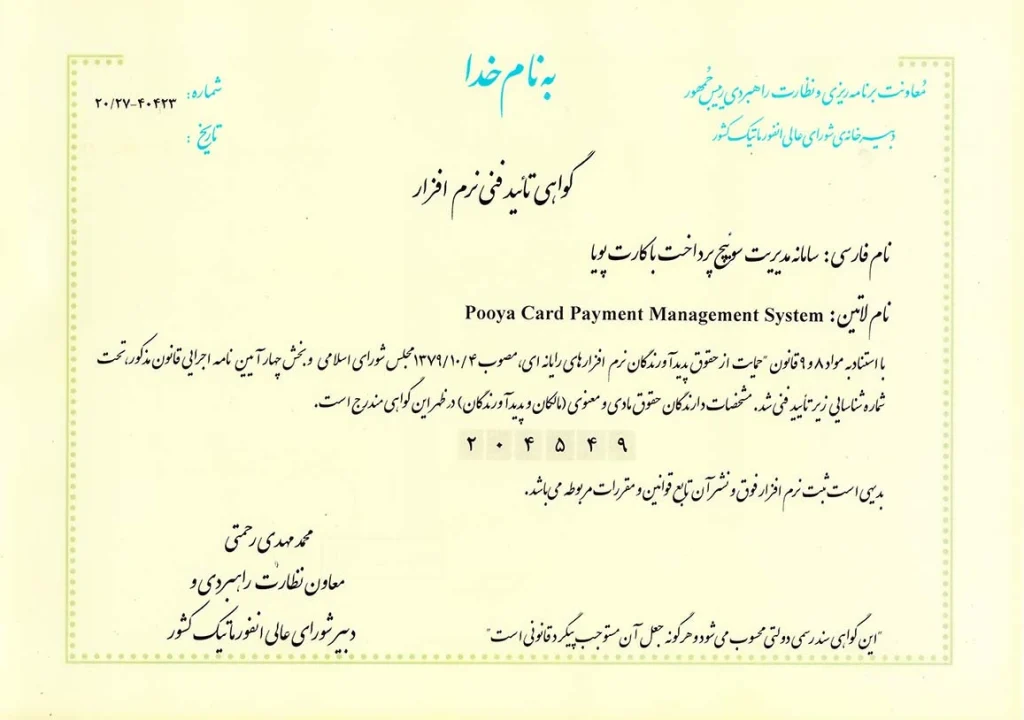 به نام خدا
معاونت برنامه ریزی و نظارت راهبردی رییس جمهور
دبیرخانه‌ی شورای عالی انفورماتیک کشور
شماره: ۲۰/۲۷-۴۰۴۲۳
تاریخ:
گواهی تأئید فنی نرم افزار
نام فارسی: سامانه مدیریت سوئیچ پرداخت با کارت پویا
نام لاتین: Pooya Card Payment Management System
با استناد به مواد ۸ و ۹ قانون "حمایت از حقوق پدیدآورندگان نرم افزارهای رایانه ای، مصوب ۱۳۷۹/۱۰/۴ مجلس شورای اسلامی و بخش چهار آیین نامه اجرایی قانون مذکور، تحت
شماره شناسایی زیر تأیید فنی شد. مشخصات دارندگان حقوق مادی و معنوی (مالکان و پدیدآورندگان) در ظهر این گواهی مندرج است.
۲ ۰ ۴ ۵ ۴ ۹
بدیهی است ثبت نرم افزار فوق و نشر آن تابع قوانین و مقررات مربوطه می‌باشد.
محمد مهدی رحمتی
معاون نظارت راهبردی و
دبیر شورای عالی انفورماتیک کشور
"این گواهی سند رسمی دولتی محسوب می‌شود و هرگونه جعل آن مستوجب پیگرد قانونی است"